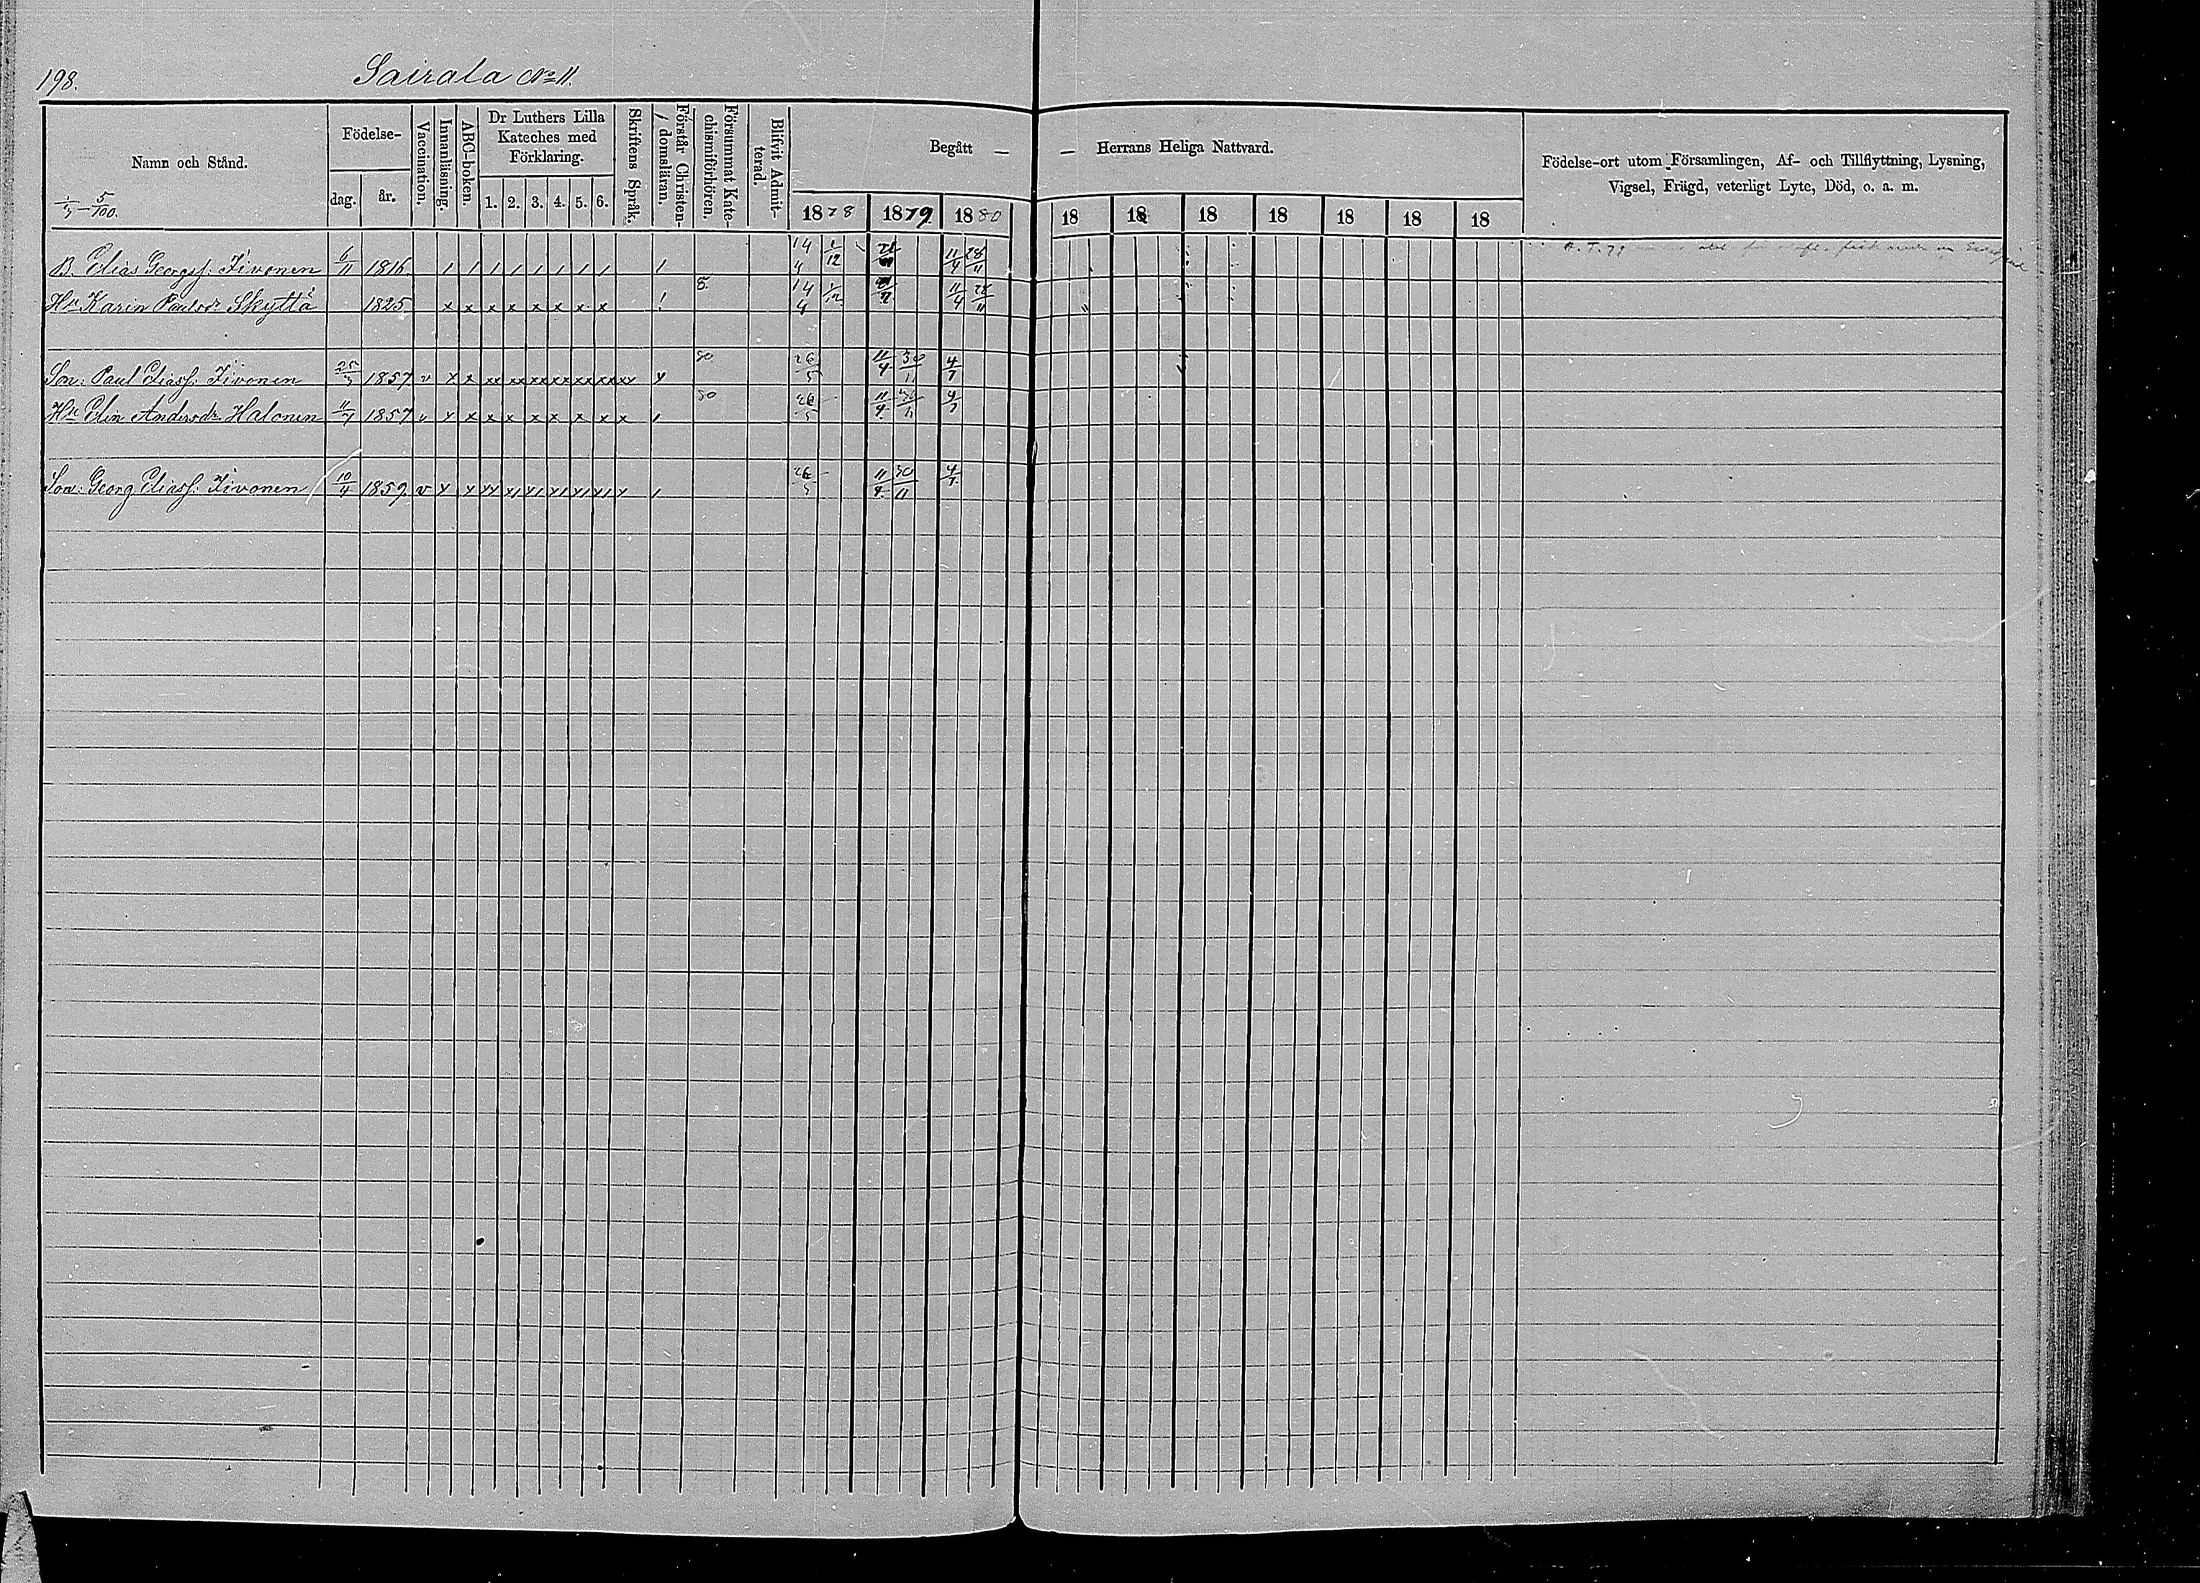 198.
Sairala No 11.
Namn och Stånd.
Födelse-
dag.
år.
Vaccination.
Innanläsning.
ABC-boken.
Dr Luthers Lilla
Kateches med
Förklaring.
1. 2. 3. 4. 5. 6.
Skriftens Språk.
Förstår Christen-
domsläran.
Försummat Kate-
chismiförhören.
Blifvit Admit-
terad.
Begått — — Herrans Heliga Nattvard.
1878 1879. 1880 18 18 18 18 18 18 18
Födelse-ort utom Församlingen, Af- och Tillflyttning, Lysning,
Vigsel, Frägd, veterligt Lyte, Död, o. a. m.
5/100.
B. Elias Georgsf. Jivonen 6/11 1816. / / / / / / / / / 14/4 1/12 11/4 28/11
Hu Karin Paulsdr Skyttä 1825. x x x x x x x x 14/4 1/12 11/4 28/11
Son: Paul Eliasf. Jivonen 25/3 1857 v x x xx xx xx xx xx xx 80 26/5 11/4 30/11 4/7
Hu Elin Andersdr Halonen 11/7 1857 v x x x x x x x x x 80 26/5 11/4 30/11 4/7
Son: Georg Eliasf. Jivonen 10/4 1859. v 26/5 11/4 30/11 4/7